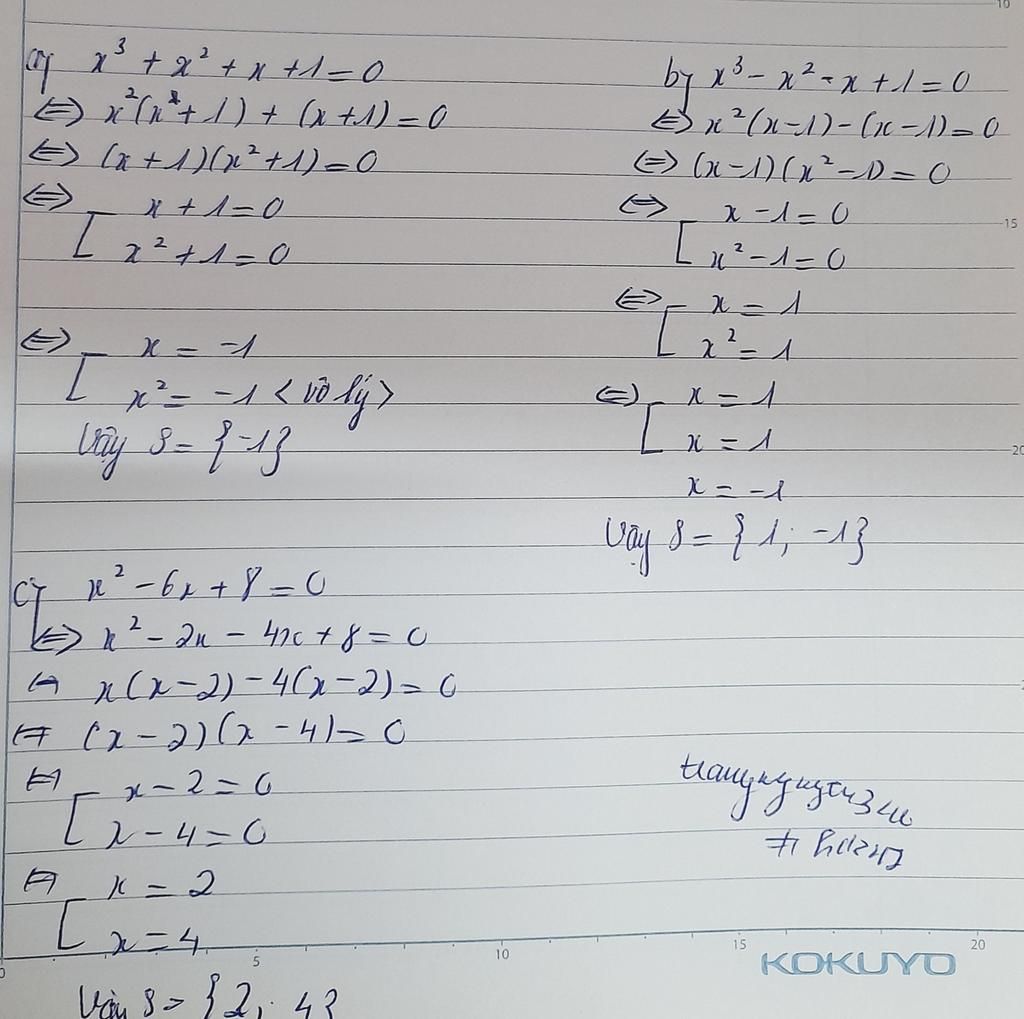 a) x³ + x² + x + 1 = 0
⇔ x²(x + 1) + (x + 1) = 0
⇔ (x + 1)(x² + 1) = 0
⇔ [ x + 1 = 0
x² + 1 = 0
⇔ [ x = -1
x² = -1 <vô lý>
Vậy S = {-1}
b) x³ - x² - x + 1 = 0
⇔ x²(x - 1) - (x - 1) = 0
⇔ (x - 1)(x² - 1) = 0
⇔ [ x - 1 = 0
x² - 1 = 0
⇔ [ x = 1
x² = 1
⇔ [ x = 1
x = 1
x = -1
Vậy S = {1; -1}
c) x² - 6x + 8 = 0
⇔ x² - 2x - 4x + 8 = 0
⇔ x(x - 2) - 4(x - 2) = 0
⇔ (x - 2)(x - 4) = 0
⇔ [ x - 2 = 0
x - 4 = 0
⇔ [ x = 2
x = 4
Vậy S = {2; 4}
10
15
20
5
10
15
20
KOKUYO